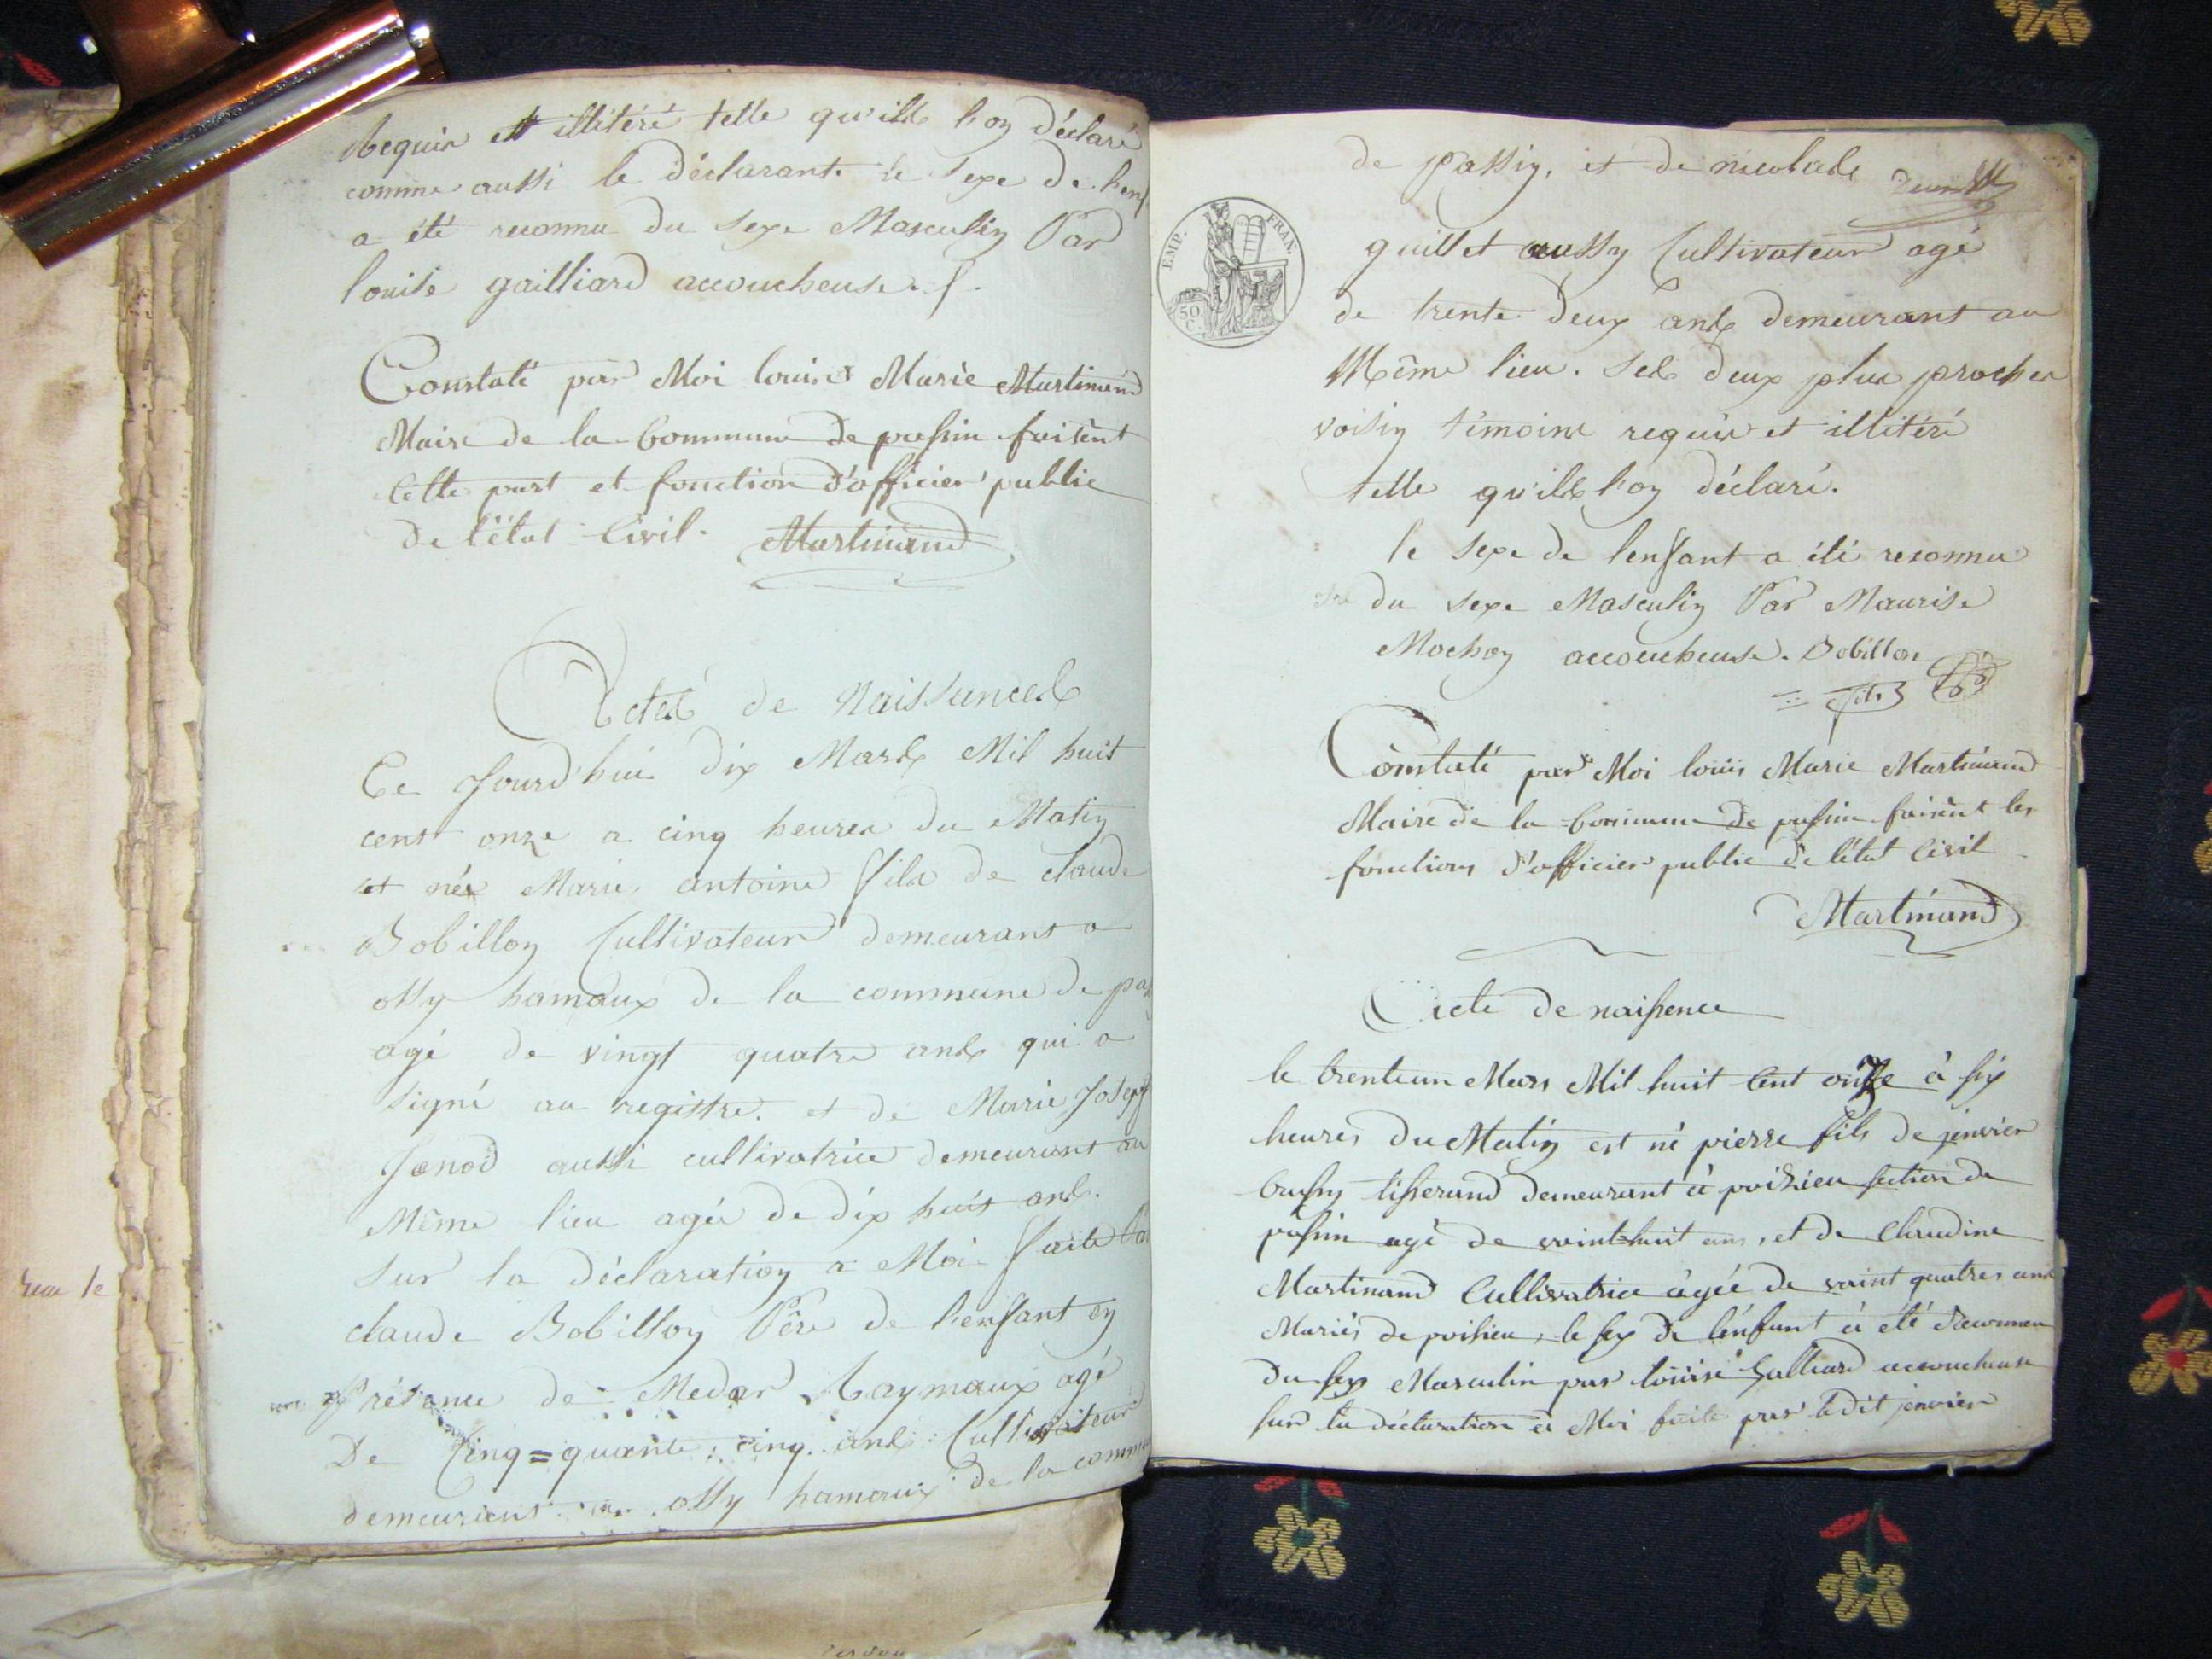 Requis et illitéré telle qu'ils l'on déclaré
comme aussi le déclarant. le sexe de l'enf
a été reconnu du sexe Masculin Par
louise gailliard accoucheuse.
Constaté par Moi louis Marie Martinand
Maire de la Commune de passin faisent
cette part et fonction d'officier public
de l'état Civil. Martinand
Actes de Naissances
Ce Jourd'hui dix Mars Mil huit
cent onze a cinq heures du Matin
et née Marie antoine fils de claude
Bobillon Cultivateur demeurant a
ossy hamaux de la commune de pas
agé de vingt quatre ans qui a
signé au registre. et de Marie Joseph
Janod aussi cultivatrice demeurant au
Même lieu agée de dix huit ans.
sur la déclaration a Moi faite
claude Bobillon Père de l'enfant en
Présence de Medar agé
De Cinq=quante cinq ans Cultivateur
demeurant a ossy hamaux de la comm
de Passin, et de nicolas
EMP. FRAN.
50 C.
guillet aussy Cultivateur agé
de trente deux ans demeurant au
Même lieu. Les deux plus proches
voisin témoins requis et illitéré
telle qu'ils l'on déclaré.
le sexe de l'enfant a été reconnu
du sexe Masculin Par Maurise
Mochon accoucheuse. Bobillon
Constaté par Moi louis Marie Martinand
Maire de la Commune de passin faisent les
fonctions d'officier public de l'état Civil
Martinand
Acte de naissence
le trente un Mars Mil huit Cent onze à six
heures du Matin est né pierre fils de jenvier
tisserand demeurant à poisieu section de
passin agé de vaint-huit ans, et de Claudine
Martinand Cultivatrice agée de vaint quatres ans
Mariés de poisieu, le sex de l'énfant à été reconneu
du sex Masculin par louise Galliard accoucheuse
sur la déclaration à Moi faite par le dit jenvier